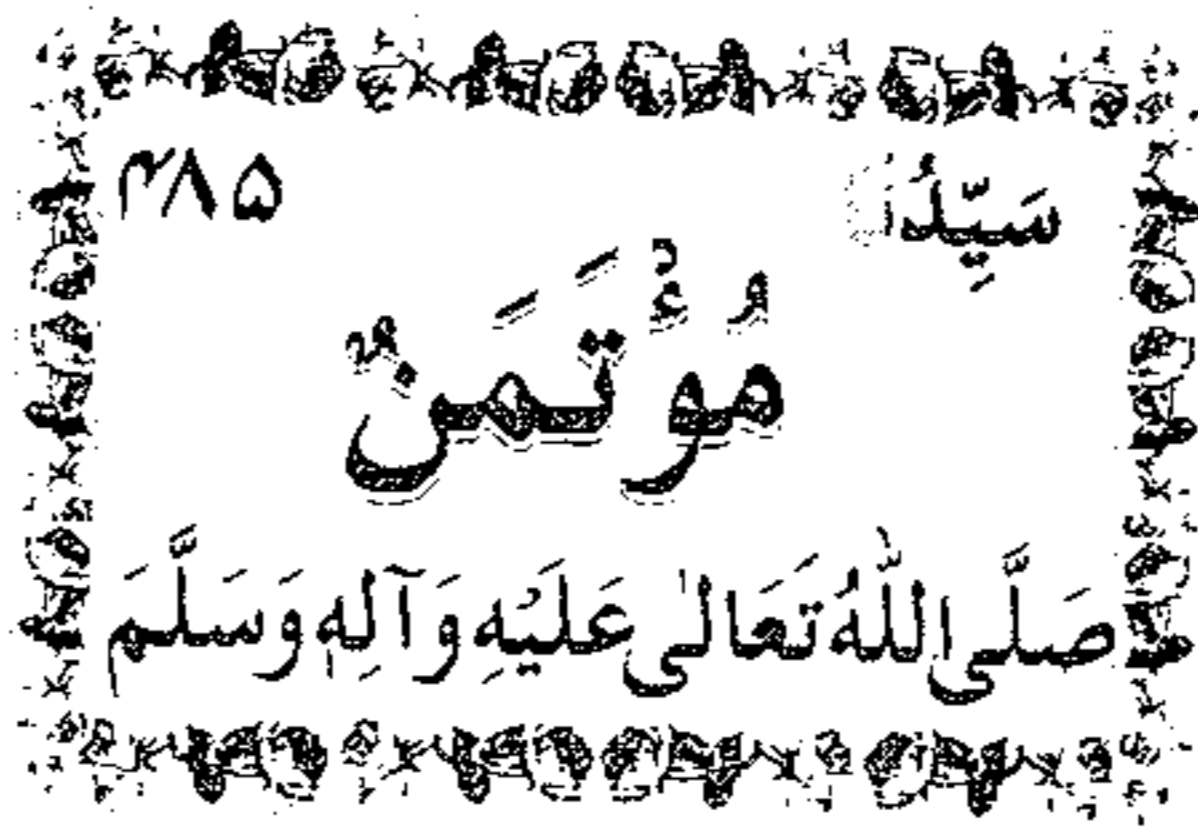 سَيِّدُنَا ۳۸۵
مُؤْتَمَنٌ
صَلَّى اللّٰهُ تَعَالٰى عَلَيْهِ وَآلِهٖ وَسَلَّمَ